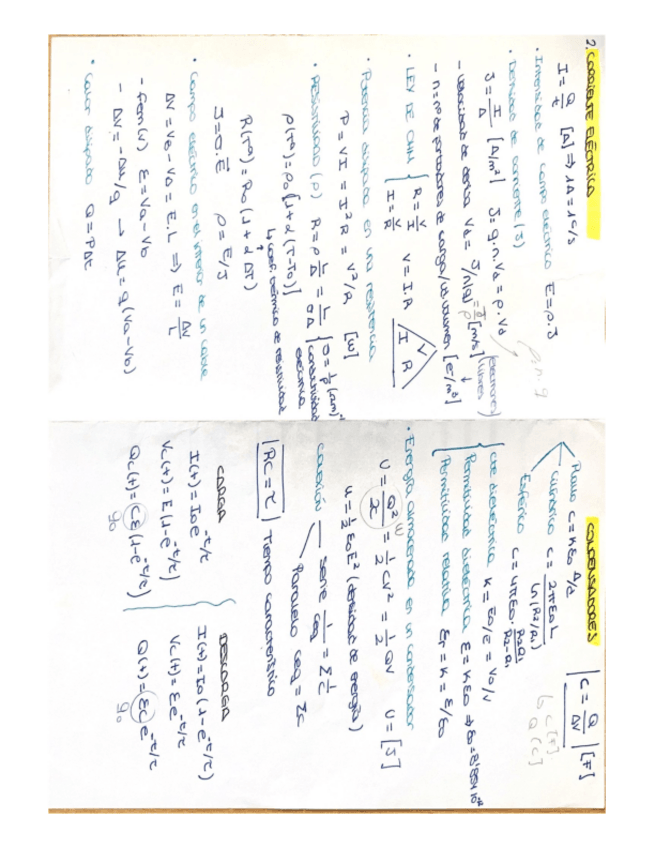 2. CORRIENTE ELÉCTRICA
I = Q/t [A] ⇒ 1A = 1C/s
· Intensidad de campo eléctrico E = ρ·J
· Densidad de corriente (J)
J = I/A [A/m²] J = q·n·Vd = ρ·Vd
ρ n·q
- velocidad de deriva Vd = J/n|q| = J/ρ [m/s] (electrones libres)
- n = nº de portadores de carga/volumen [e⁻/m³]
· LEY DE OHM { R = V/I V = I·R
I = V/R
V
I R
· Potencia disipada en una resistencia
P = VI = I²R = V²/R [W]
· Resistividad (ρ) R = ρ L/A = L/σA { σ = 1/ρ (Ωm)⁻¹
conductividad eléctrica
ρ(Tº) = ρ₀[1+α(T-T₀)]
↳ coef. térmico de resistividad
R(Tº) = R₀(1+αΔT)
J = σ·E ρ = E/J
· Campo eléctrico en el interior de un cable
ΔV = Va - Vb = E·L ⇒ E = ΔV/L
- fem (W) ε = Va - Vb
- ΔV = -ΔU/q → ΔU = q(Va - Vb)
· Calor disipado Q = PΔt
CONDENSADORES
|C = Q/ΔV| [F]
↳ C [F]
Q (C)
Plano C = Kε₀ A/d
Cilíndrico C = 2πε₀L / ln(R₂/R₁)
Esférico C = 4πε₀· R₂R₁/R₂-R₁
{ cte dieléctrica K = E₀/E = V₀/V
Permitividad dieléctrica ε = Kε₀ → ε₀ = 8'85×10⁻¹²
Permitividad relativa εr = K = ε/ε₀
· Energía almacenada en un condensador
W
U = Q²/2C = 1/2 CV² = 1/2 QV U = [J]
u = 1/2 ε₀E² (densidad de energía)
CONEXIÓN serie 1/Ceq = Σ 1/C
Paralelo Ceq = ΣC
|RC = τ| Tiempo característico
CARGA
I(t) = I₀e^-t/τ
Vc(t) = ε(1-e^-t/τ)
Qc(t) = Cε(1-e^-t/τ)
q₀
DESCARGA
I(t) = I₀(1-e^-t/τ)
Vc(t) = εe^-t/τ
Q(t) = εCe^-t/τ
q₀